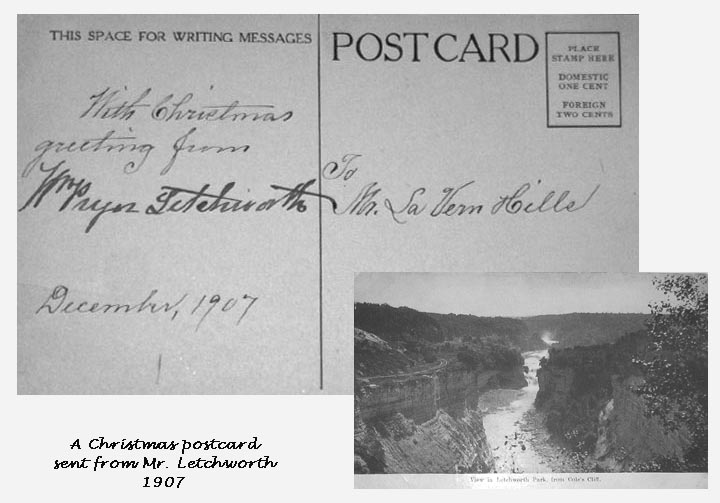 THIS SPACE FOR WRITING MESSAGES
POSTCARD
PLACE
STAMP HERE
DOMESTIC
ONE CENT
FOREIGN
TWO CENTS
With Christmas
greeting from
Wm Pryor Letchworth
December, 1907
To
Mr. La Vern Hills
View in Letchworth Park, from Cole's Cliff.
A Christmas postcard
sent from Mr. Letchworth
1907